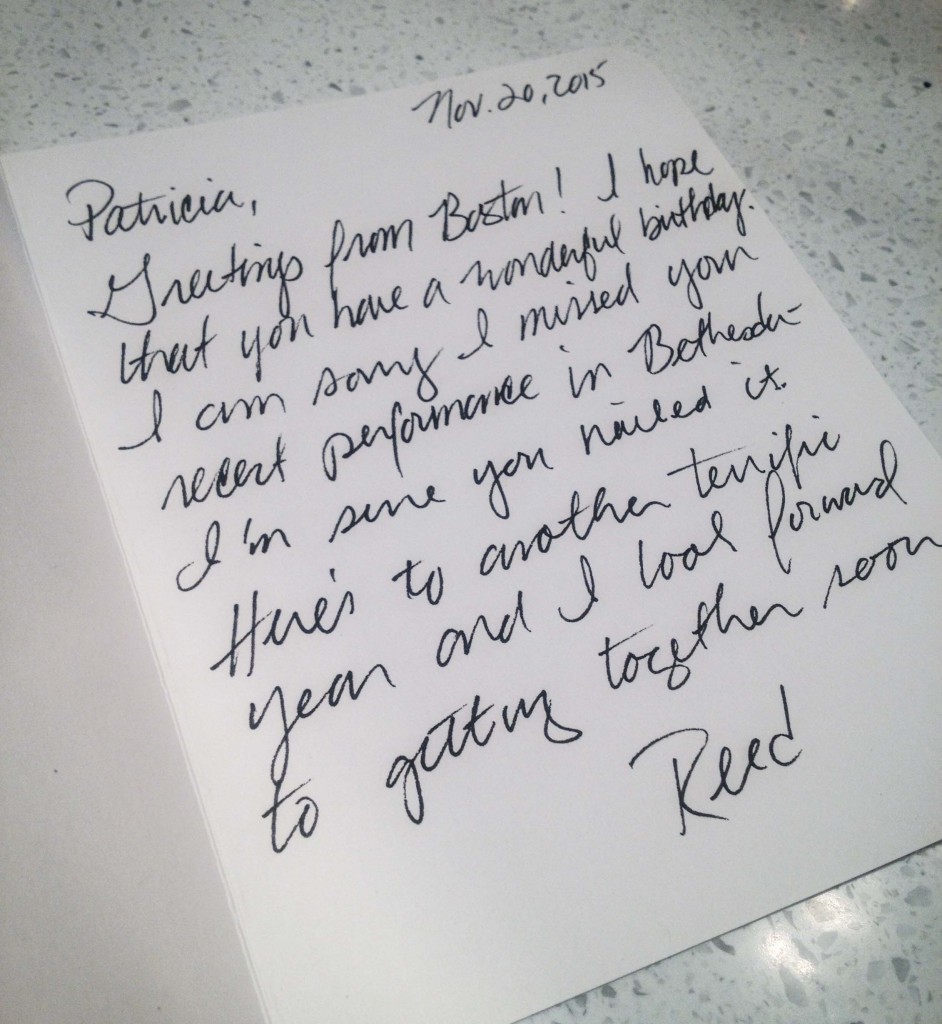 Nov. 20, 2015
Patricia,
Greetings from Boston! I hope
that you have a wonderful birthday.
I am sorry I missed your
recent performance in Bethesda-
I'm sure you nailed it.
Here's to another terrific
year and I look forward
to getting together soon
Reed